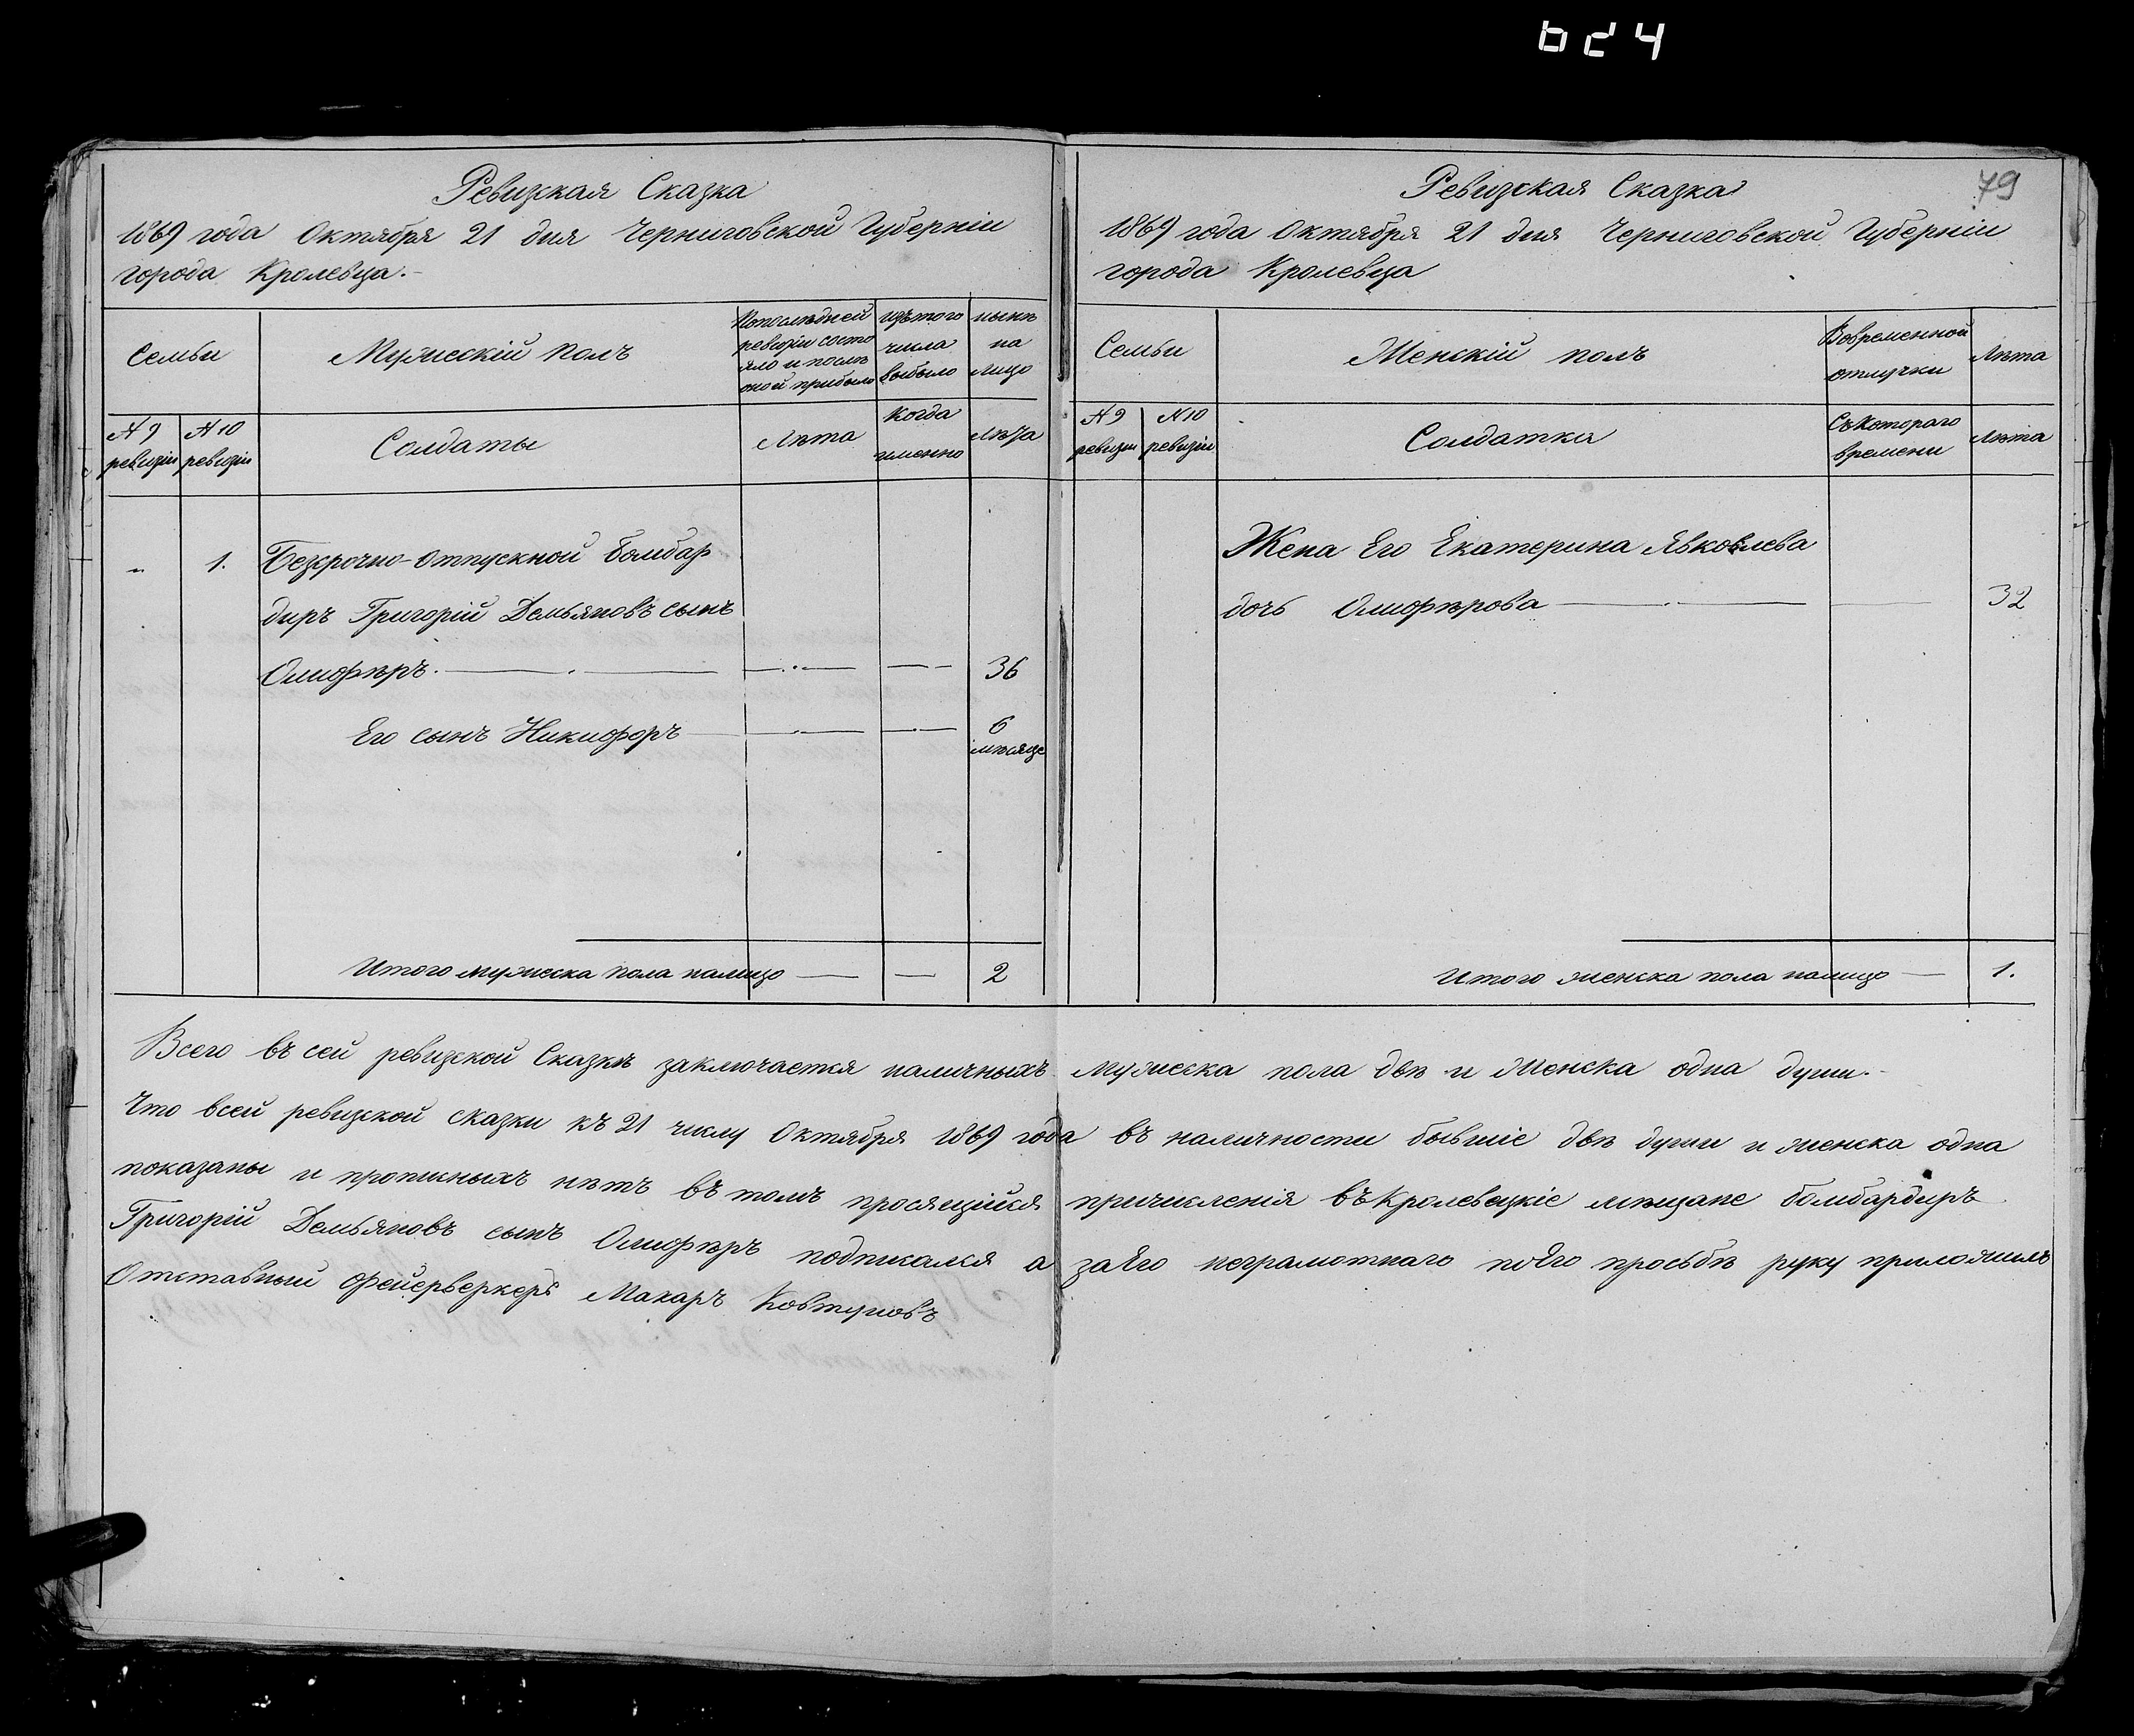 624
Ревизская Сказка
1869 года Октября 21 дня Черниговской Губерніи
города Кролевца.-
Семьи
Мужескій Полъ
Попослѣдней
ревизіи состо
яло и послѣ
оной прибыло
изътого
числа
выбыло
нынѣ
на
лицо
№ 9
ревизіи
№ 10
ревизіи
Солдаты
Лѣта
Когда
именно
Лѣта
„ 1. Безсрочно-отпускной Бомбар
диръ Григорій Демьяновъ сынъ
Олифѣръ. 36
Его сынъ Никифоръ 6
мѣсяце
Итого мужеска пола налицо 2
79
Ревизская Сказка
1869 года Октября 21 дня Черниговской Губерніи
города Кролевца
Семьи
Женскій полъ
Вовременной
отлучки
Лѣта
№ 9
ревизіи
№ 10
ревизіи
Солдатка
Съкотораго
времени
Лѣта
Жена Его Екатерина Явковлева
дочь Олифѣрова 32
Итого женска пола налицо 1.
Всего въ сей ревизской Сказкѣ заключается наличныхъ мужеска пола двѣ и Женска одна души.-
Что всей ревизской сказки къ 21 числу Октября 1869 года въ наличности бывшіе двѣ души и женска одна
показаны и прописныхъ нѣтъ въ томъ просящійся причисленія въ Кролевецкіе мѣщане бомбардиръ
Григорій Демьяновъ сынъ Олифѣръ подписался а заЕго неграмотнаго поЕго просьбѣ руку приложилъ
Отставный фейерверкеръ Макаръ Ковтуновъ